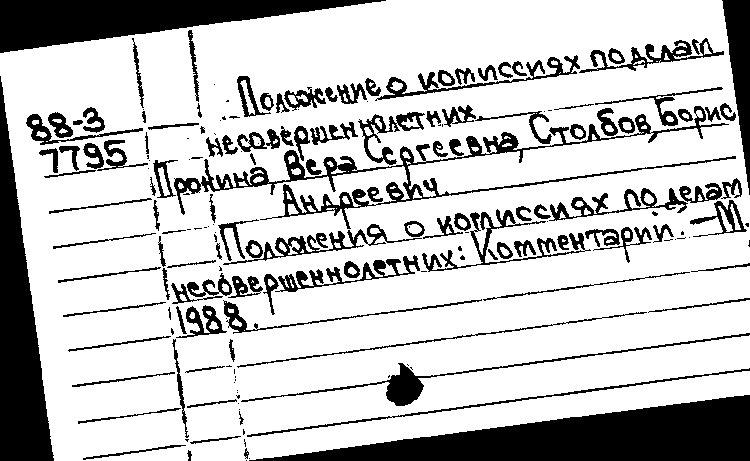 Положение о комиссиях по делам
88-3
несовершеннолетних.
7795
Пронина, Вера Сергеевна, Столбов, Борис
Андреевич.
Положения о комиссиях по делам
несовершеннолетних: Комментарий. – М.,
1988.